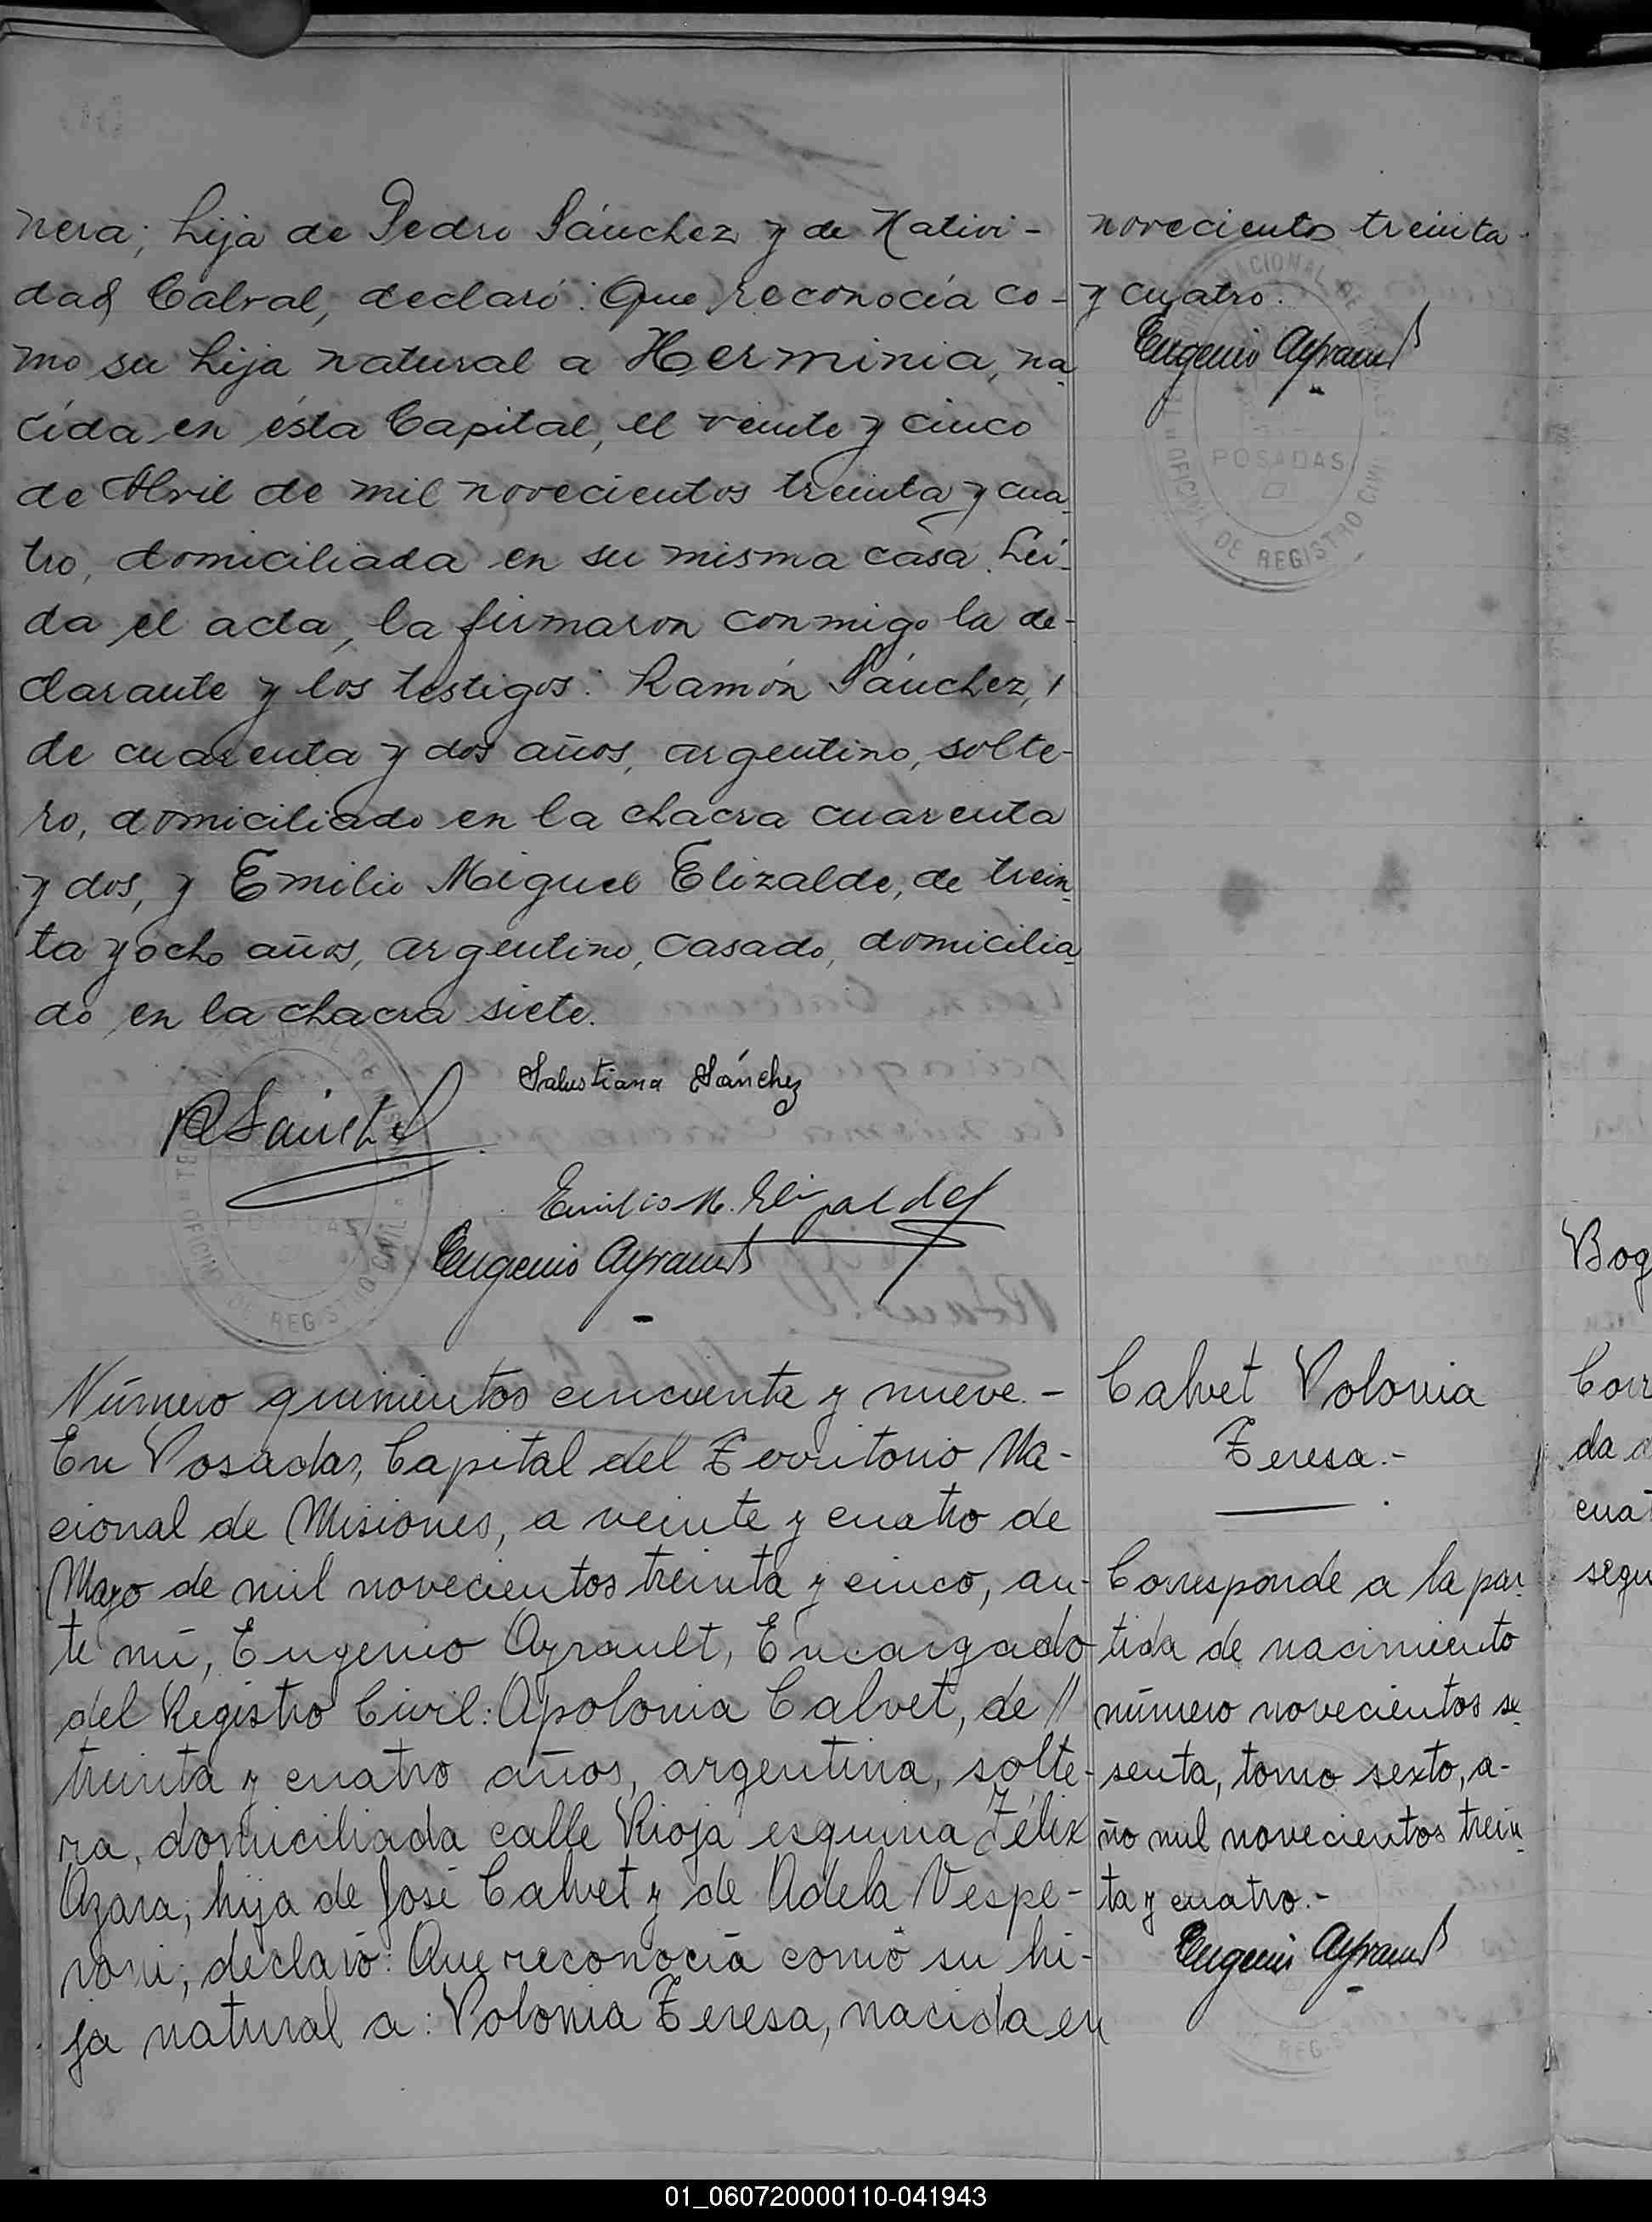 nera; hija de Pedro Sánchez y de Nativi-
dad Cabral, declaró: Que reconocía co-
mo su hija natural a Herminia, na
cida en ésta Capital, el veinte y cinco
de Abril de mil novecientos treinta y cua
tro, domiciliada en su misma casa. Leí-
da el acta, la firmaron conmigo la de-
clarante y los testigos: Ramón Sánchez,
de cuarenta y dos años, argentino, solte-
ro, domiciliado en la chacra cuarenta
y dos, y Emilio Miguel Elizalde, de trein
ta y ocho años, argentino, casado, domicilia
do en la chacra siete.
Salustiana Sánchez
R Sánchez
Emilio M. Elizalde
Eugenio Ayrault
novecientos treinta
y cuatro.
Eugenio Ayrault
NACIONAL DE
POSADAS
OFICINA DE REGISTRO CIVIL
Número quinientos cincuenta y nueve.-
En Posadas, Capital del Territorio Na-
cional de Misiones, a veinte y cuatro de
Mayo de mil novecientos treinta y cinco, an-
te mí, Eugenio Ayrault, Encargado
del Registro Civil: Apolonia Calvet, de //
treinta y cuatro años, argentina, solte-
ra, domiciliada calle Rioja esquina Félix
Azara; hija de José Calvet y de Adela Vespe-
roni; declaró: Que reconocía como su hi-
ja natural a: Polonia Teresa, nacida en
Calvet Polonia
Teresa.-
Corresponde a la par
tida de nacimiento
número novecientos se
senta, tomo sexto, a-
ño mil novecientos trein
ta y cuatro.-
Eugenio Ayrault
Bog
Corr
da
cuat
segu
01_060720000110-041943